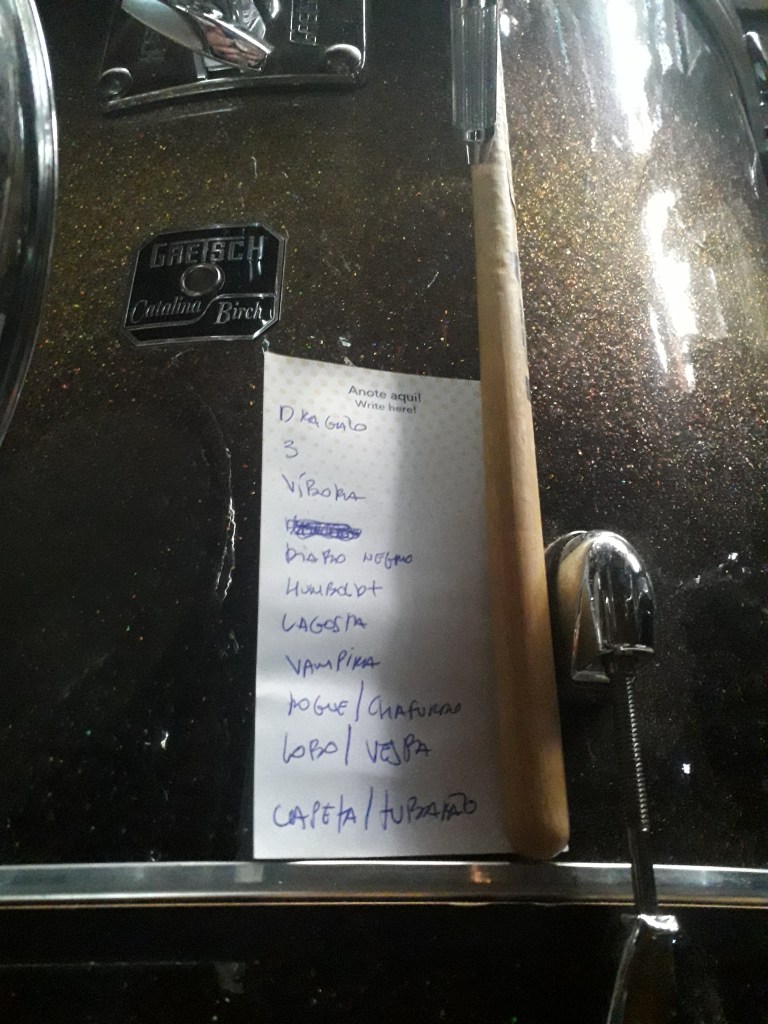 GRETSCH
Catalina Birch
Anote aqui!
Write here!
DRAGÃO
3
VÍBORA
DIABO NEGRO
HUMBOLDT
LAGOSTA
VAMPIRA
/CHAFURDO
LOBO/VESPA
CAPETA/TUBARÃO